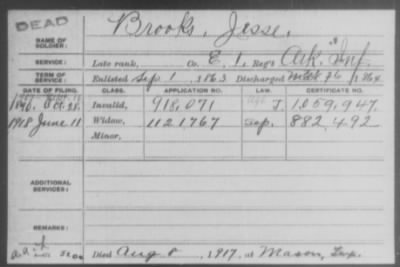 DEAD
Brooks, Jesse.
NAME OF SOLDIER:
SERVICE: Late rank, Co. E, 1, Reg't Ark. Inf.
TERM OF SERVICE: Enlisted Sep 1, 1863 Discharged 1864
DATE OF FILING. CLASS. APPLICATION NO. LAW. CERTIFICATE NO.
Invalid, 918,071 J. 1,059,947.
1918 June 11 Widow, 1121767 Sep. 882,492
Minor,
ADDITIONAL SERVICES:
REMARKS:
Died Aug 8, 1917, at Mason, Tenn.